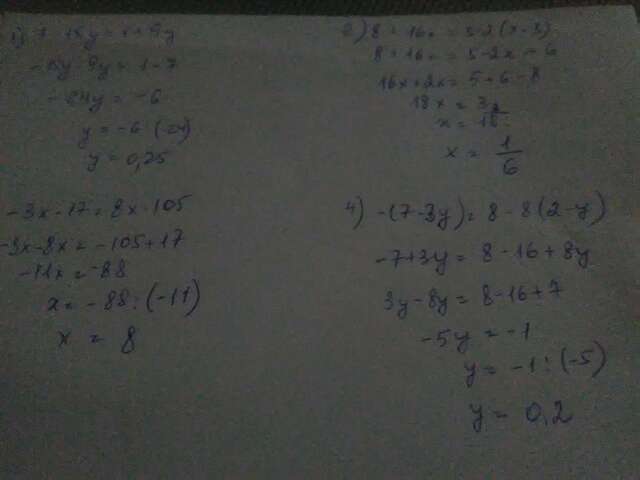 1) 7 - 15y = 1 + 9y
-15y - 9y = 1 - 7
-24y = -6
y = -6 : (-24)
y = 0,25
2) 8 + 16x = 5 - 2(x - 3)
16x + 2x = 5 + 6 - 8
18x = 3
x = 1/6
-3x - 17 = 8x - 105
-3x - 8x = -105 + 17
-11x = -88
x = -88 : (-11)
x = 8
4) -(7-3y) = 8 - 8(2-y)
-7+3y = 8 - 16 + 8y
3y - 8y = 8 - 16 + 7
-5y = -1
y = -1 : (-5)
y = 0,2